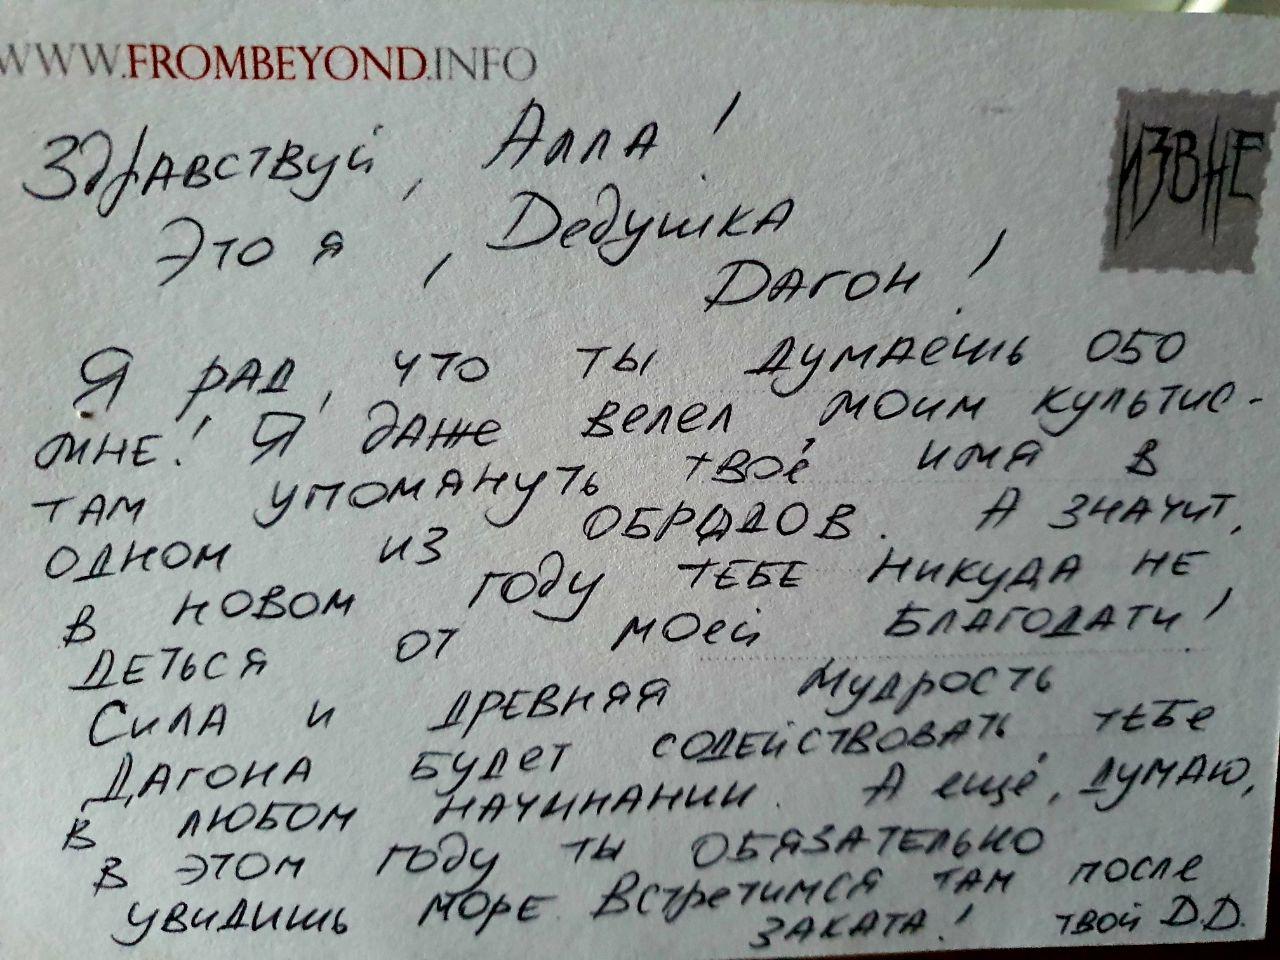 WWW.FROMBEYOND.INFO
ИЗВНЕ
Здравствуй, Алла!
Это я, Дедушка
Дагон!
Я рад, что ты думаешь обо
мне! Я даже велел моим культис-
там упомянуть твоё имя в
одном из обрядов. А значит,
в новом году тебе никуда не
деться от моей благодати!
Сила и древняя мудрость
Дагона будет содействовать тебе
в любом начинании. А ещё, думаю,
в этом году ты обязательно
увидишь море. Встретимся там после
заката! твой Д.Д.